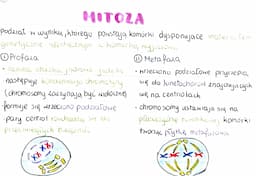 MITOZA
podział w wyniku, którego powstają komórki dysponujące materiałem
genetycznym identycznym z komórką
I Profaza
następuje kondensacja chromatyny
(chromosomy zaczynają być widoczne)
formuje się wrzeciono podziałowe
pary centrioli
II Metafaza
wrzeciono podziałowe przyczepia
się do kinetochorów znajdujących
się na centromerach
chromosomy ustawiają się na
płaszczyźnie komórki
tworząc płytkę metafazową